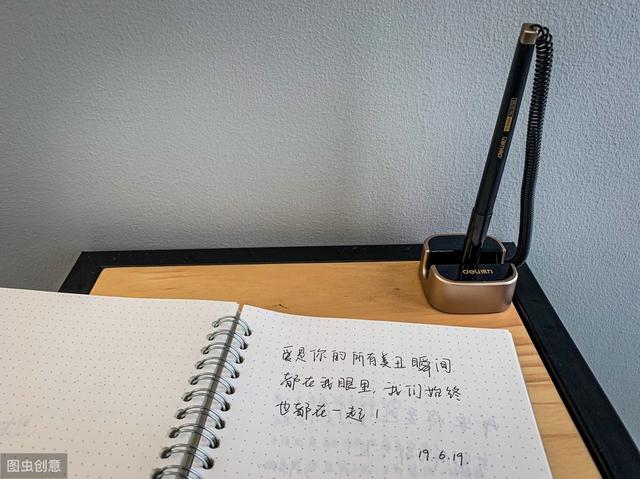 deli得力
要是你的所有美丑瞬间
都在我眼里,我们始终
也都在一起!
19.6.19.
图虫创意